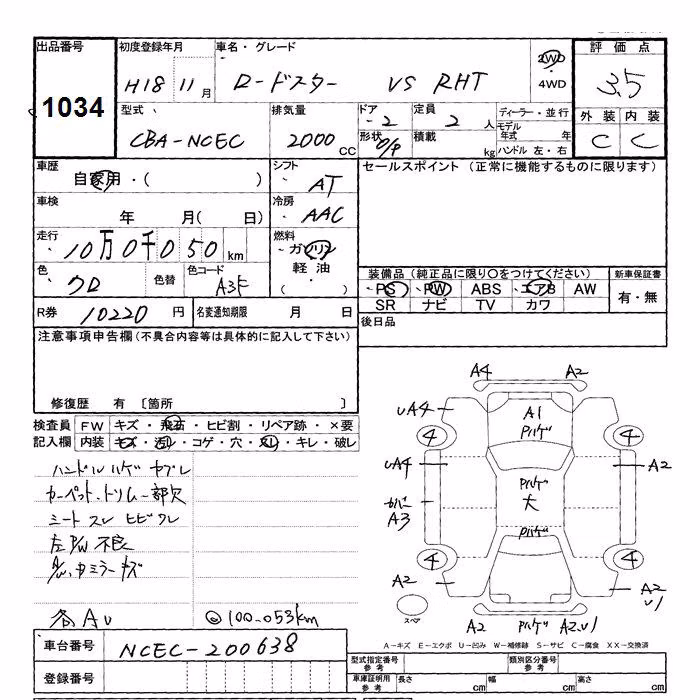 出品番号 初度登録年月 車名・グレード 2WD 評価点
1034 H18 11月 ロードスター VS RHT 4WD 3.5
型式 排気量 ドア 定員 ディーラー・並行 外装 内装
CBA-NCEC 2000CC 2 2人 モデル年式 年 C C
形状 O/P 積載 kg ハンドル 左・右
車歴 シフト セールスポイント(正常に機能するものに限ります)
自家用・( ) AT
車検 冷房
年 月( 日) AAC
走行 燃料
10万0千050km ガソリン
軽油
( )
色 色替 色コード 装備品(純正品に限り○をつけてください) 新車保証書
クロ A3F PS PW ABS エアB AW 有・無
SR ナビ TV カワ
R券 10220円 名変通知期限 月 日 後日品
注意事項申告欄(不具合内容等は具体的に記入して下さい)
修復歴 有 〔箇所 〕
検査員 FW キズ・飛石・ヒビ割・リペア跡・×要
記入欄 内装 キズ・汚レ・コゲ・穴・スレ・キレ・破レ
ハンドルハゲ ヤブレ
カーペット.トリム一部欠
シート スレ ヒビワレ
左P/W不良
ミラーキズ
各AU
◎100.053km
A4 A2
UA4 A1
Pハゲ
4 4
UA4 Pハゲ A2
大
カバー
A3
Pハゲ
4 4
A2 A2
U1
スペア
A2 Pハゲ A2.U1
A-キズ E-エクボ U-凹み W-補修跡 S-サビ C-腐食 XX-交換済
車台番号 NCEC-200638
型式指定番号 参考 類別区分番号 参考
登録番号
車庫証明用 参考 長さ cm 幅 cm 高さ cm